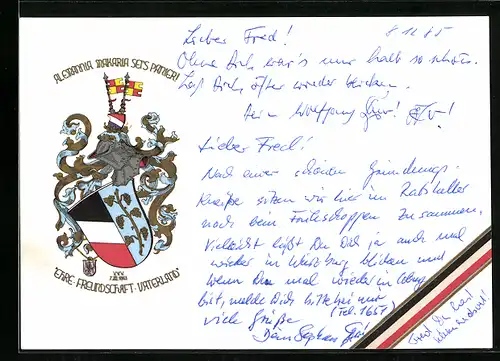 ALEMANNIA MAKARIA SEI'S PANIER!
"EHRE · FREUNDSCHAFT · VATERLAND"
8.12.85
Lieber Fred!
Ohne Dich war's nur halb so schön.
Laß Dich öfter wieder blicken.
Dein Wolfgang
Lieber Fred!
Nach einer schönen Gründungs-
kneipe sitzen wir hier im Ratskeller
noch beim Frühschoppen zusammen.
Vielleicht läßt Du Dich ja auch mal
wieder in Würzburg blicken und
wenn Du mal wieder in Coburg
bist, melde Dich bitte bei mir
(Tel. 1651)
viele Grüße
Dein Stephan